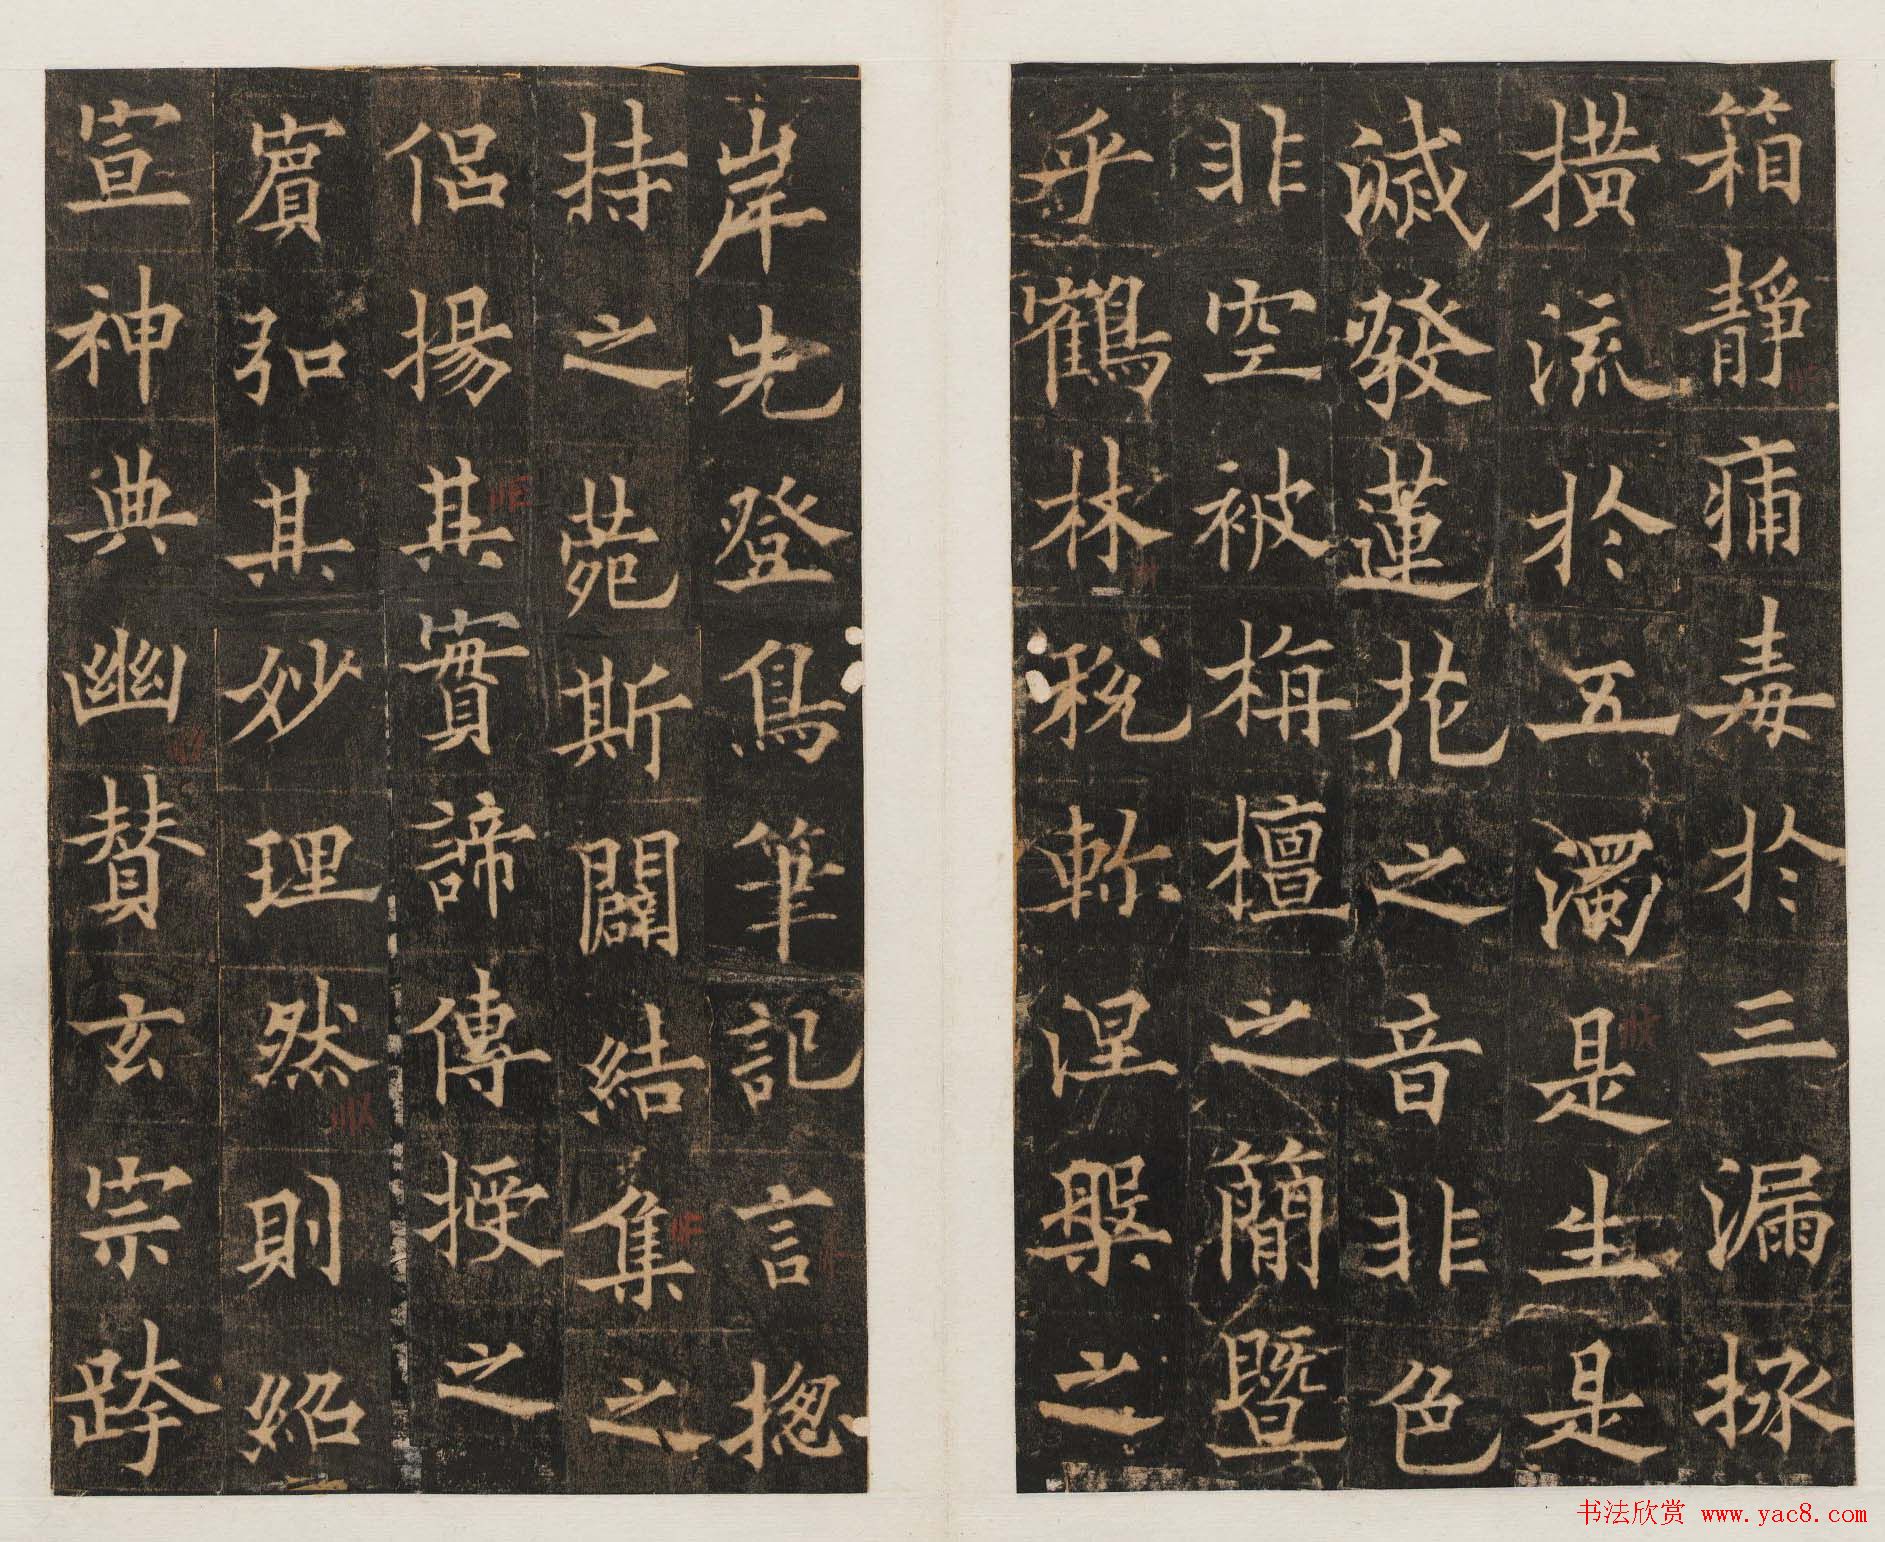 箱静痛毒於三漏拯
横流於五濁是生是
滅發蓮花之音非色
非空被栴檀之簡暨
乎鶴林税軫涅槃之
岸先登鳥筆記言揔
持之菀斯闢結集之
侶揚其實諦傳授之
賓弘其妙理然則紹
宣神典幽賛玄宗跨
书法欣赏 www.yac8.com